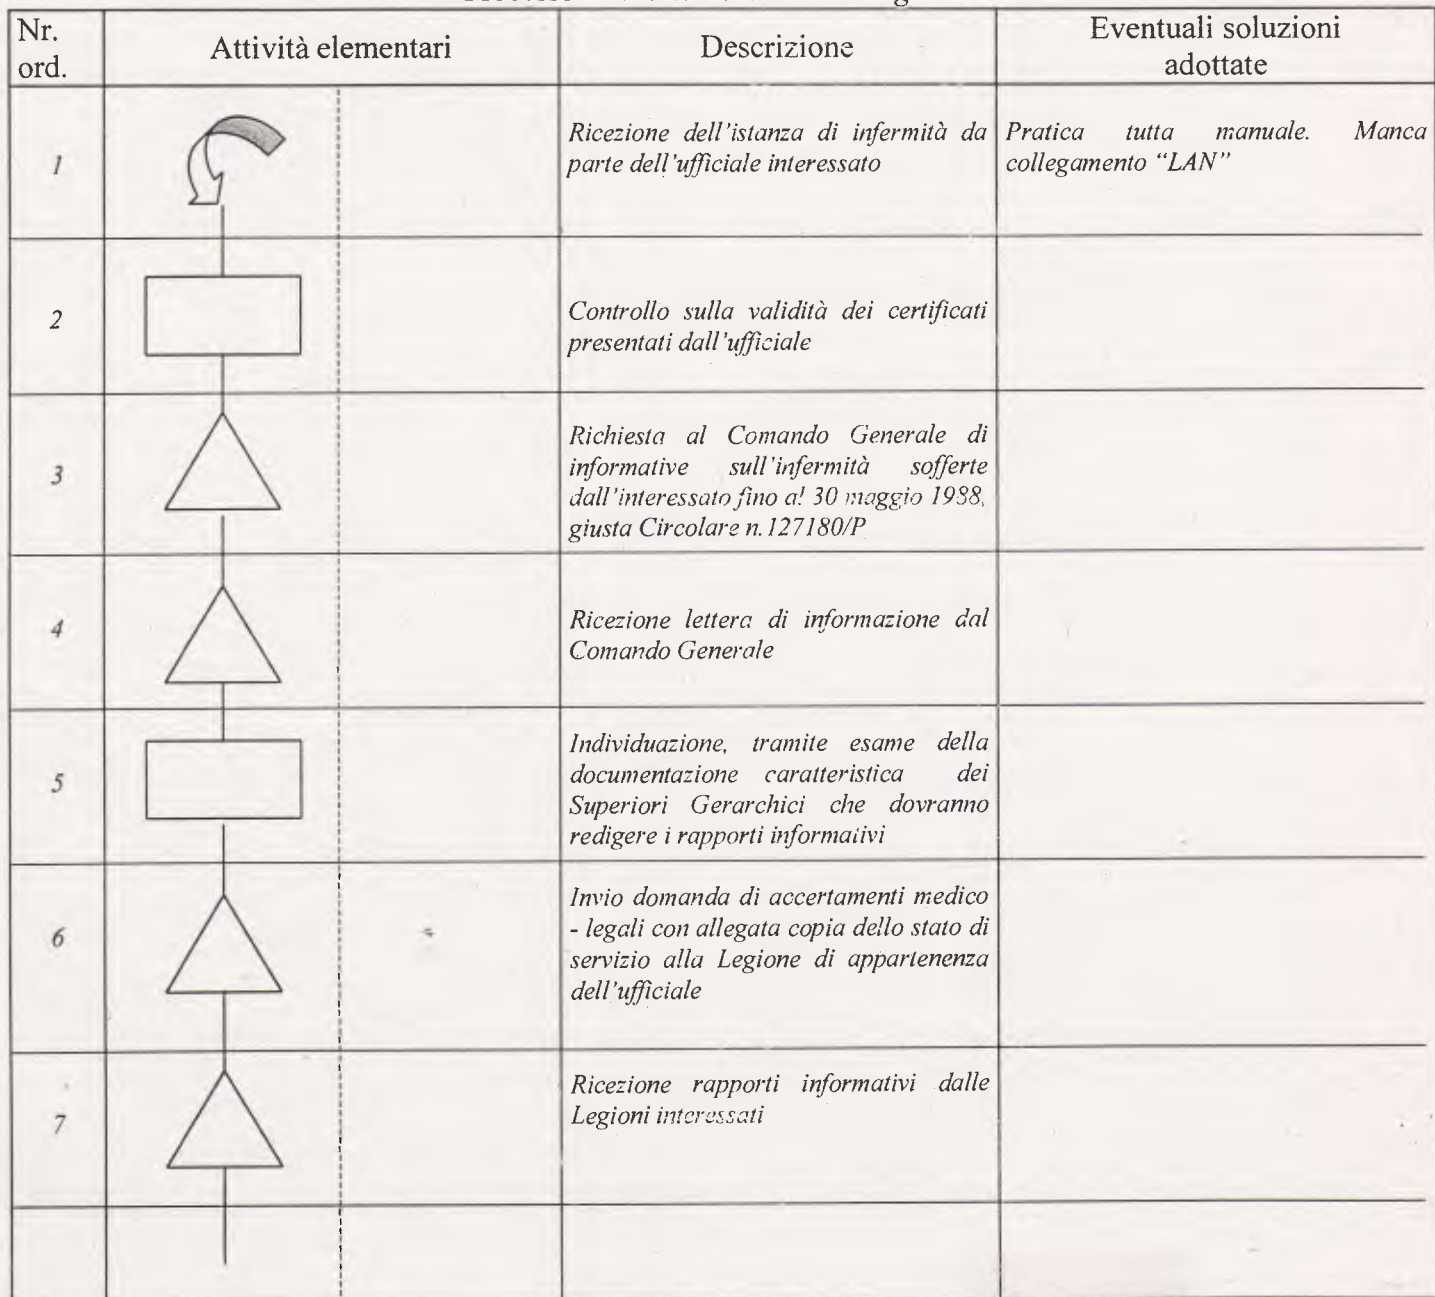 Nr.
ord.
Attività elementari
Descrizione
Eventuali soluzioni
adottate
1
Ricezione dell'istanza di infermità da
parte dell'ufficiale interessato
Pratica tutta manuale. Manca
collegamento "LAN"
2
Controllo sulla validità dei certificati
presentati dall'ufficiale
3
Richiesta al Comando Generale di
informative sull'infermità sofferte
dall'interessato fino al 30 maggio 1988,
giusta Circolare n.127180/P
4
Ricezione lettera di informazione dal
Comando Generale
5
Individuazione, tramite esame della
documentazione caratteristica dei
Superiori Gerarchici che dovranno
redigere i rapporti informativi
6
Invio domanda di accertamenti medico
- legali con allegata copia dello stato di
servizio alla Legione di appartenenza
dell'ufficiale
7
Ricezione rapporti informativi dalle
Legioni interessati